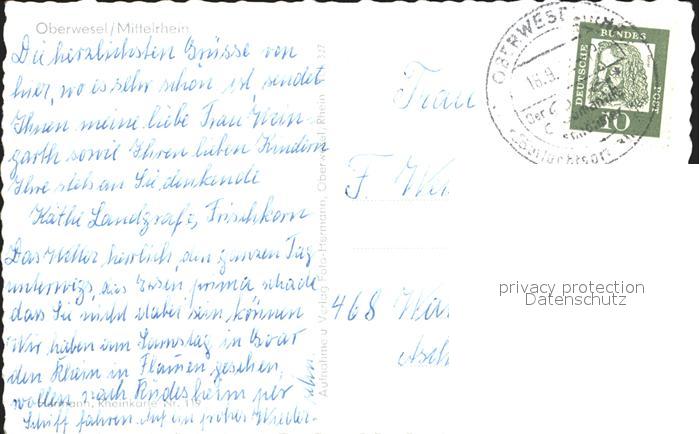 Oberwesel/Mittelrhein
Die herzlichsten Grüsse von
hier, wo es sehr schön ist, sendet
Ihnen meine liebe Frau Wein-
garth sowie Ihren lieben Kindern
Ihre stets an Sie denkende
Käthe Landgrafe, Frischkorn
Das Wetter herrlich, den ganzen Tag
unterwegs, das Essen prima schade
dass Sie nicht dabei sein können
Wir haben am Samstag in Goar
den Rhein in Flamen gesehen,
wollen nach Rüdesheim per
Schiff fahren. Auf ein frohes Wieder-
sehn.
Hermann, Rheinkarte Nr. 119
Aufnahme u. Verlag Foto-Hermann, Oberwesel, Rhein 327
OBERWESEL
DEUTSCHE
BUNDES
POST
10
Frau
F. Wei
468 Wa
Asch
privacy protection
Datenschutz